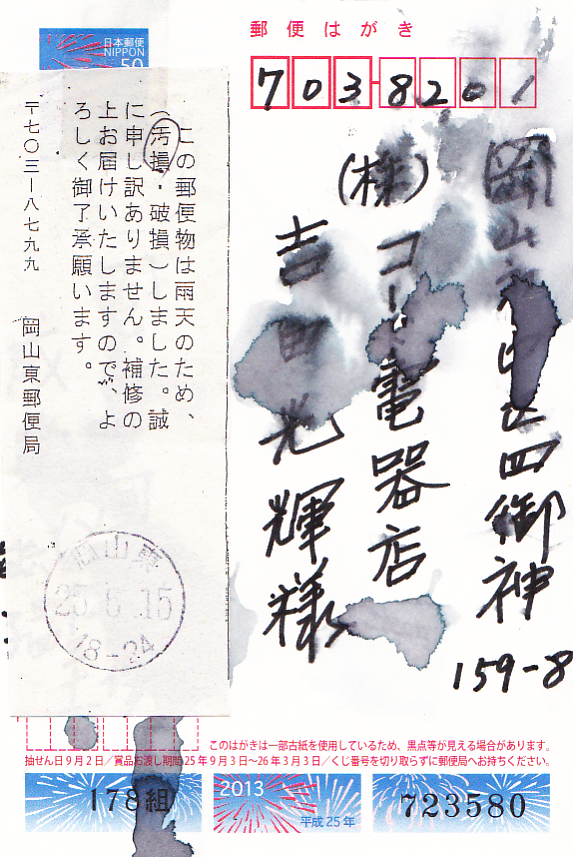 郵便はがき
日本郵便
NIPPON
50
703-8201
岡山市中区四御神
159-8
(株)コート電器店
吉田光輝様
この郵便物は雨天のため、
(汚損・破損)しました。誠
に申し訳ありません。補修の
上お届けいたしますので、よ
ろしく御了承願います。
〒七〇三ー八七九九 岡山東郵便局
岡山東
25.6.15
18-24
このはがきは一部古紙を使用しているため、黒点等が見える場合があります。
抽せん日9月2日/賞品お渡し期間25年9月3日~26年3月3日/くじ番号を切り取らずに郵便局へお持ちください。
178組
2013
平成25年
723580